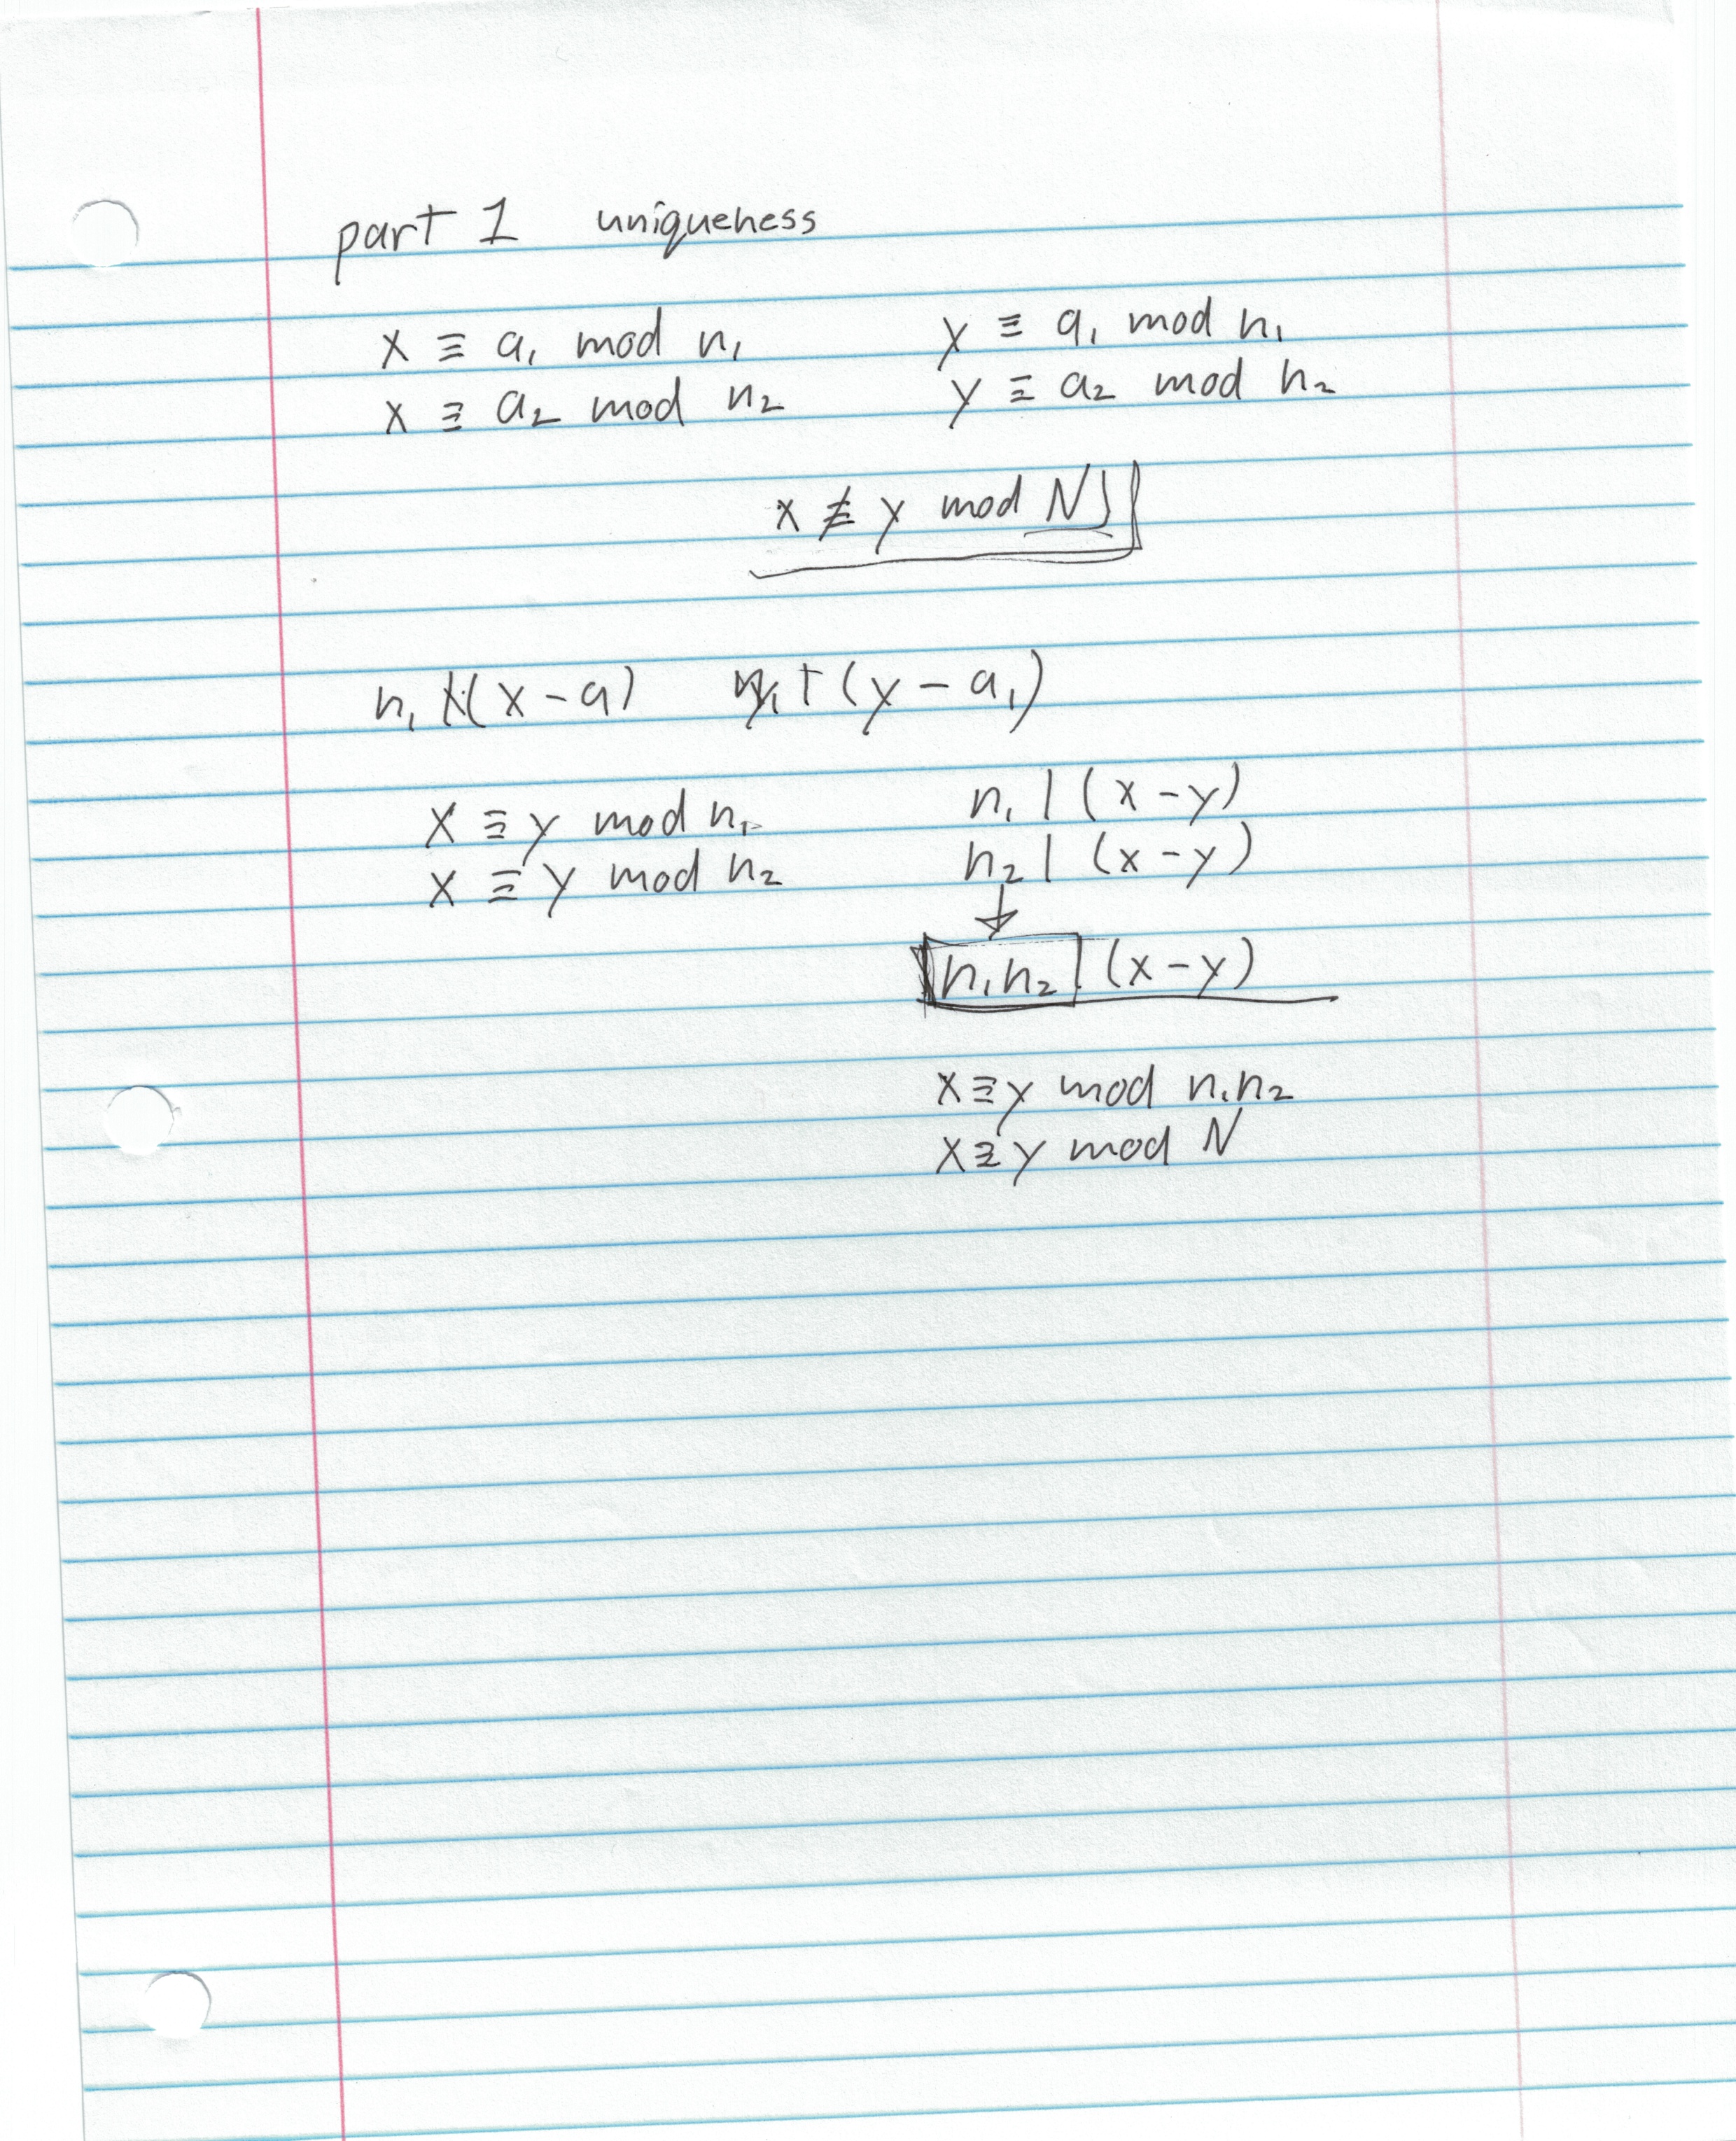 part 1 uniqueness
x ≡ a₁ mod n₁ y ≡ a₁ mod n₁
x ≡ a₂ mod n₂ y ≡ a₂ mod n₂
x ≢ y mod N
n₁ ∤ (x - a) n₁ ∤ (y - a₁)
x ≡ y mod n₁ n₁ | (x - y)
x ≡ y mod n₂ n₂ | (x - y)
↓
n₁n₂ | (x - y)
x ≡ y mod n₁n₂
x ≡ y mod N